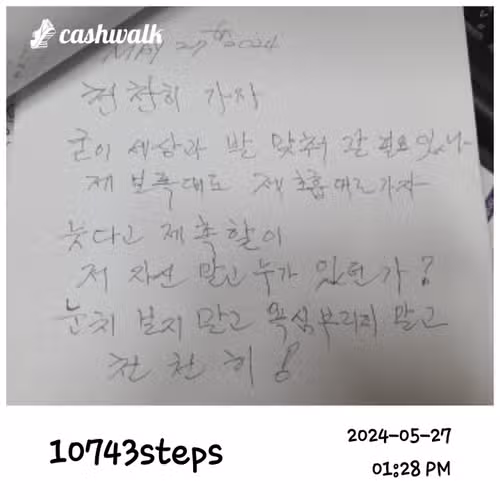 cashwalk
MAY 27th 2024
천천히 가자
굳이 세상과 발 맞춰 갈 필요 있나
제 보폭대로 제 호흡대로 가자
늦다고 재촉할 이
저 자신 말고 누가 있던가?
눈치 보지 말고 욕심부리지 말고
천천히!
10743steps
2024-05-27
01:28 PM